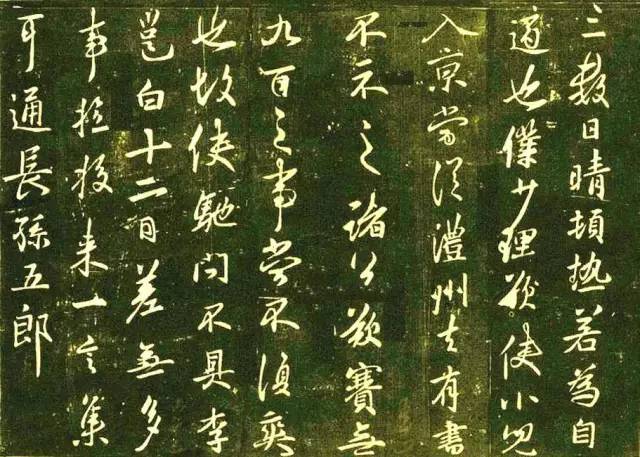 三數日晴頓熱若為自
適也僕少理欲使小兒
入京當從澧州去有書
不示之諸公欲賽無
九百之事當不須爽
也故使馳問不具李
邕白十二日差無多
事能投來一言集
耳通長孫五郎